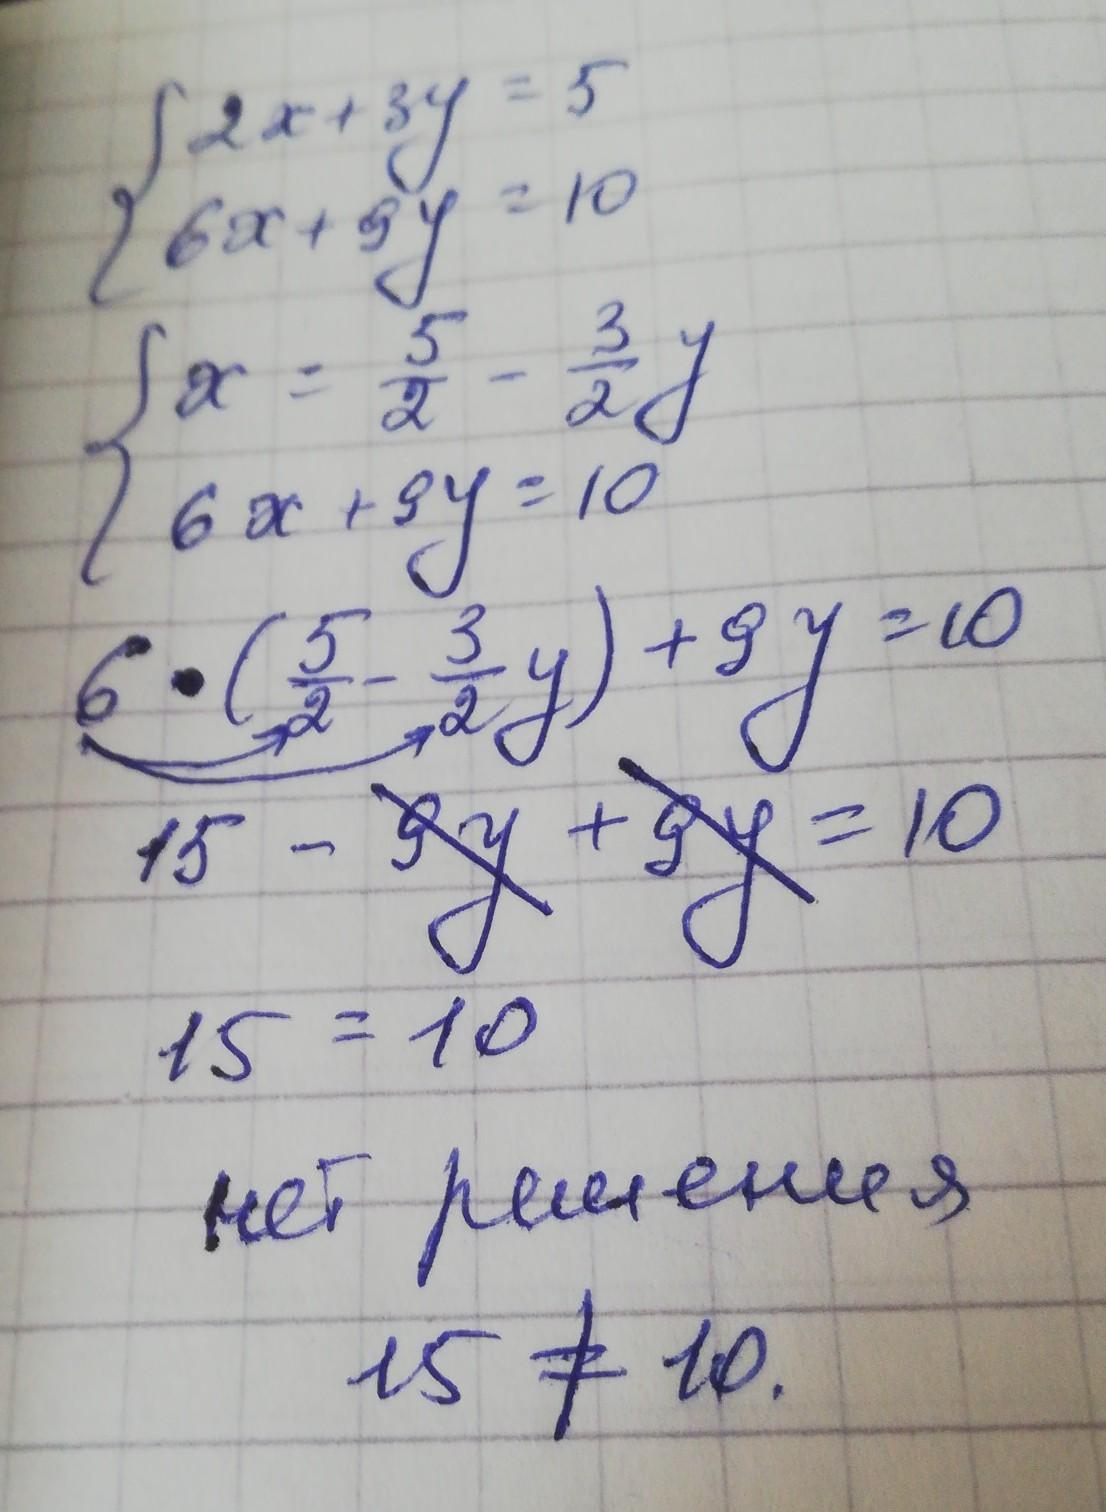 { 2x + 3y = 5
6x + 9y = 10
{ x = 5/2 - 3/2 y
6x + 9y = 10
6 • (5/2 - 3/2 y) + 9y = 10
15 - 9y + 9y = 10
15 = 10
нет решения
15 ≠ 10.